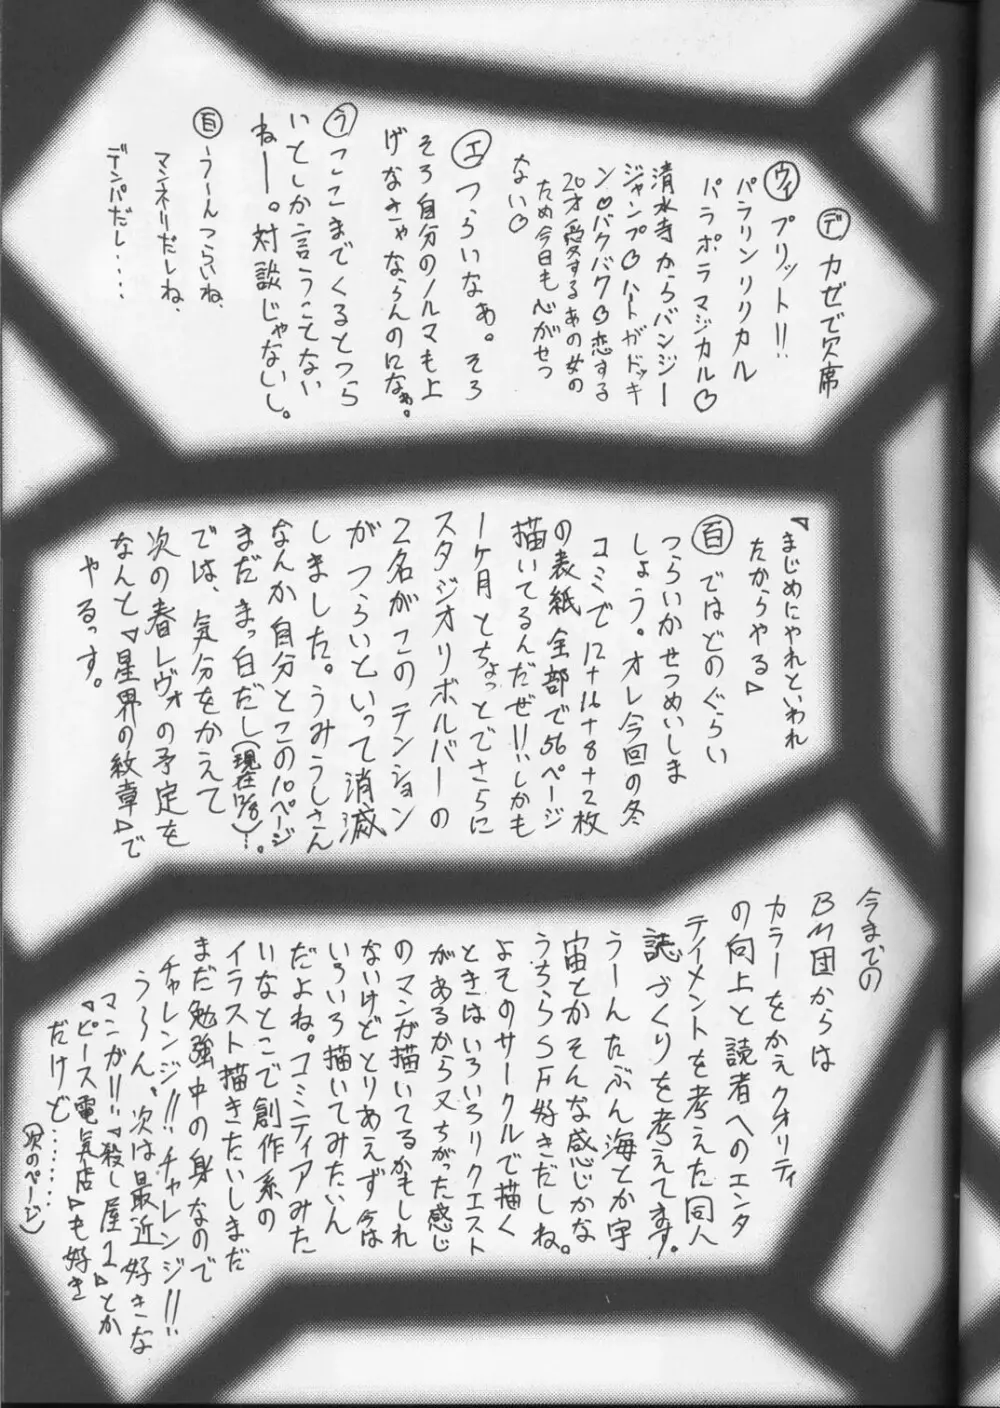 デ カゼで欠席
ウィ プリット!!
パラリンリリカル
パラポラマジカル♡
清水寺からバンジー
ジャンプ♡ハートがドッキ
ン♡バクバク♡恋する
20才愛するあの女の
ため今日も心がせつ
ない♡
エ つらいなぁ。そろ
そろ自分のノルマも上
げなきゃならんのになぁ。
う ここまでくるとつら
いとしか言うことない
ねー。対談じゃないし。
百 う〜んつらいね、
マンネリだしね、
デンパだし‥‥
「まじめにやれといわれ
たからやる」
百 ではどのぐらい
つらいかせつめいしま
しょう。オレ今回の冬
コミで12+16+8+2枚
の表紙全部で56ページ
描いてるんだぜ!!しかも
1ヶ月とちょっとでさらに
スタジオリボルバーの
2名がこのテンション
がつらいといって消滅
しました。うみうしさん
なんか自分とこの10ページ
まだまっ白だし(現在12/8)‥。
では、気分をかえて
次の春レヴォの予定を
なんと「星界の紋章」で
やるっす。
今までの
BM団からは
カラーをかえクオリティ
の向上と読者へのエンタ
ティメントを考えた同人
誌づくりを考えてます。
うーんたぶん海とか宇
宙とかそんな感じかな
うちらSF好きだしね。
よそのサークルで描く
ときはいろいろリクエスト
があるから又ちがった感じ
のマンガ描いてるかもしれ
ないけどとりあえず今は
いろいろ描いてみたいん
だよね。コミティアみた
いなとこで創作系の
イラスト描きたいしまだ
まだ勉強中の身なので
チャレンジ!!チャレンジ!!
う〜ん、次は最近好きな
マンガ!!「殺し屋1」とか
「ピース電気店」も好き
だけど‥‥‥‥
(次のページ)